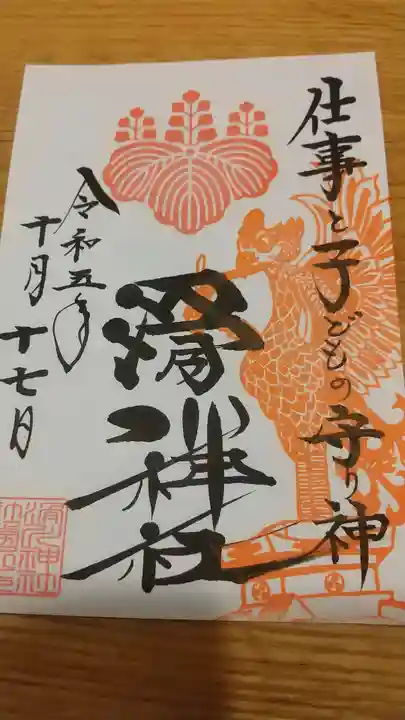 仕事と子どもの守り神
滑川神社
令和五年
十月十七日